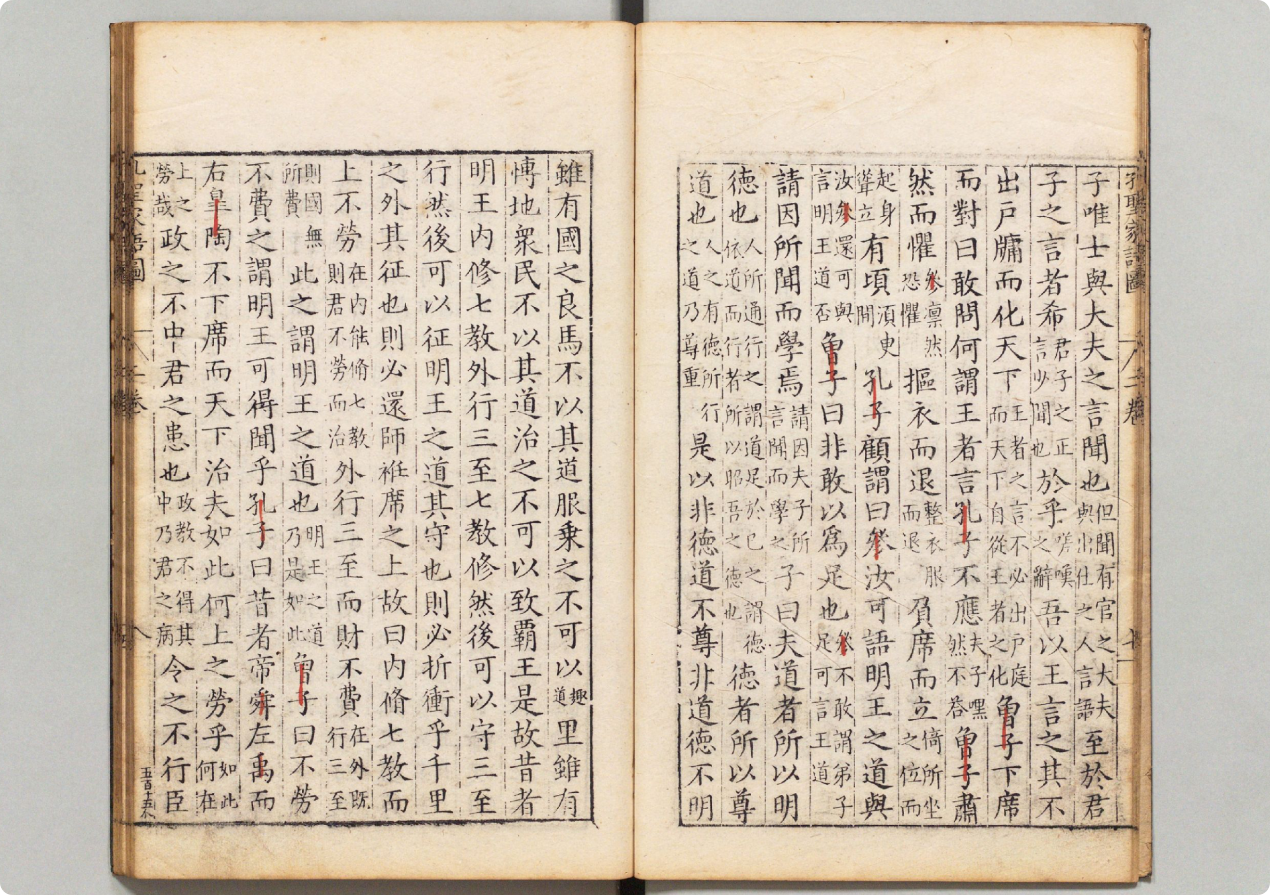 孔聖家語圖
子唯士與大夫之言聞也但聞有官之大夫與出仕之人言語至於君
子之言者希君子之正言少聞也於乎嗟嘆之辭吾以王言之其不
出戶牖而化天下王者之言不必出戶庭而天下自從王者之化曾子下席
而對曰敢問何謂王者言孔子不應夫子嘿然不答曾子肅
然而懼參凜然恐懼摳衣而退整衣服而退負席而立倚所坐之位而
起身聳立有頃須臾間孔子顧謂曰參汝可語明王之道與
汝參還可與言明王道否曾子曰非敢以爲足也參不敢謂弟子足可言王道
請因所聞而學焉請因夫子所言聞而學之子曰夫道者所以明
德也人所通行之謂道足於己之謂德依道而行者所以昭吾之德也德者所以尊
道也人之有德所行之道乃尊重是以非德道不尊非道德不明
雖有國之良馬不以其道服乗之不可以趣道里雖有
博地衆民不以其道治之不可以致霸王是故昔者
明王内修七教外行三至七教修然後可以守三至
行然後可以征明王之道其守也則必折衝乎千里
之外其征也則必還師袵席之上故曰内脩七教而
上不勞在内能脩七教則君不勞而治外行三至而財不費在外既行三至
則國無所費此之謂明王之道也明王之道乃是如此曾子曰不勞
不費之謂明王可得聞乎孔子曰昔者帝舜左禹而
右皐陶不下席而天下治夫如此何上之勞乎如此何在
上之勞哉政之不中君之患也政教不得其中乃君之病令之不行臣
孔聖家語圖